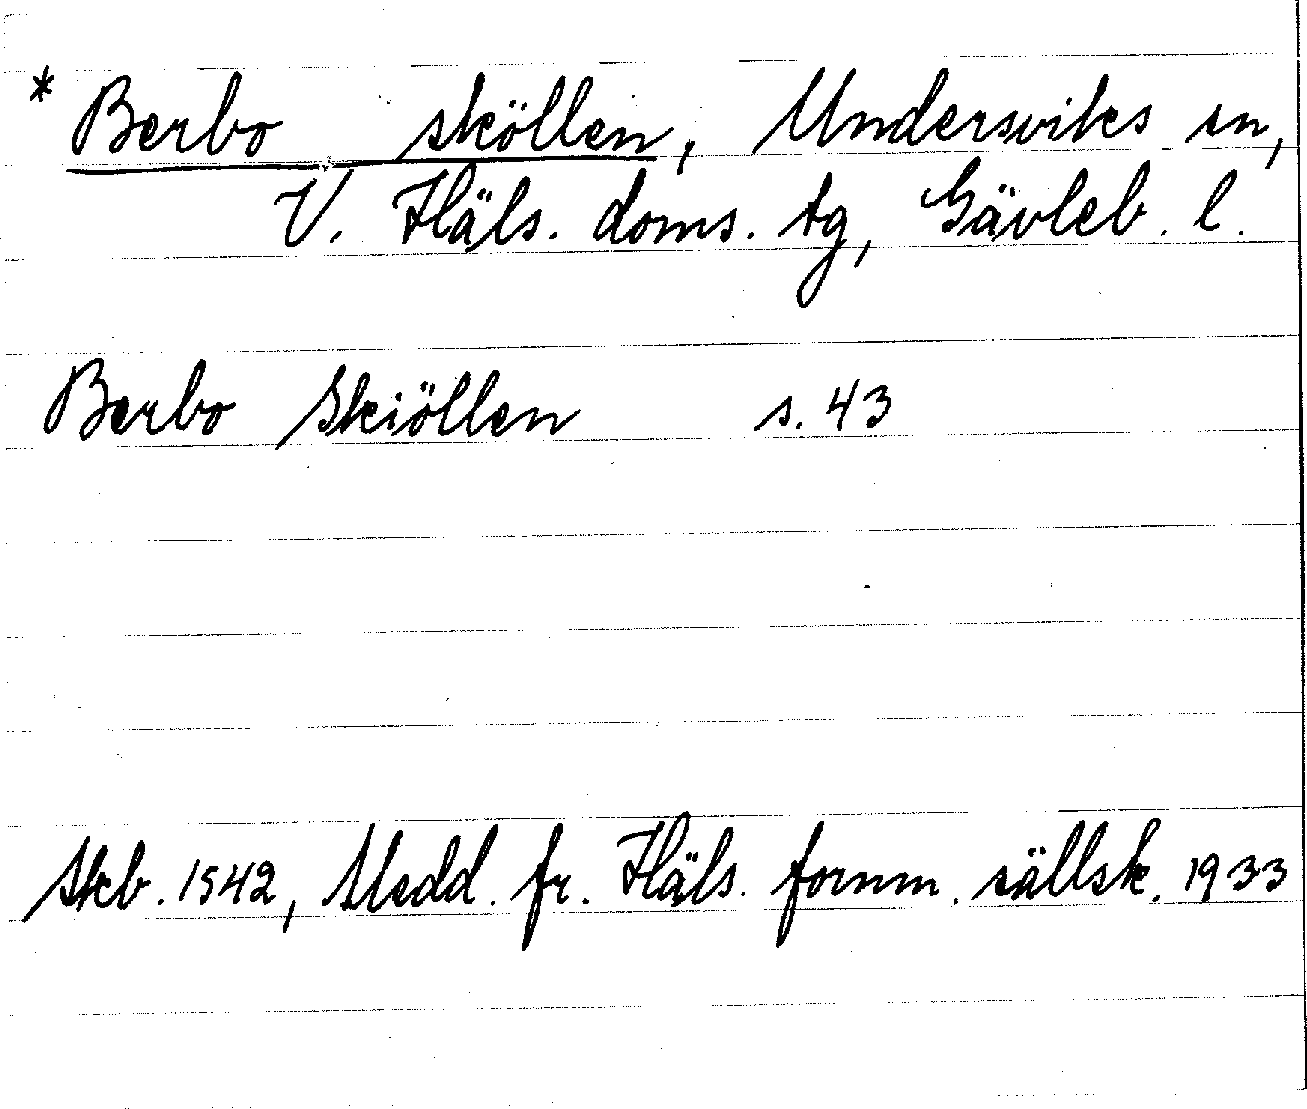 * Berbo sköllen, Undersviks sn,
V. Häls. doms. tg, Gävleb. l.
Berbo Skiöllen s. 43
Skb. 1542, Medd. fr. Häls. fornm. sällsk. 1933